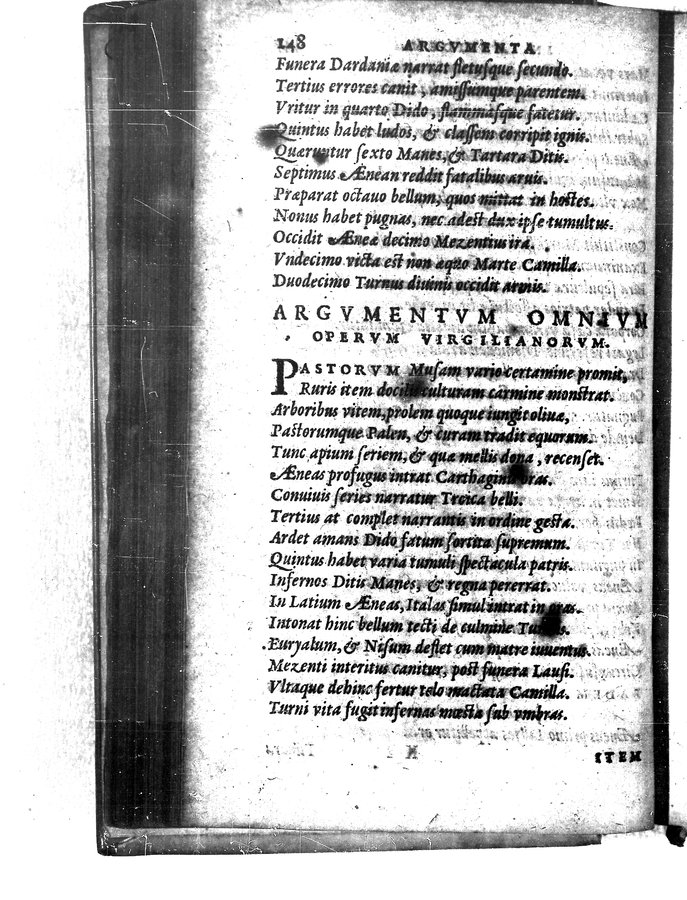 148 ARGVMENTA
Funera Dardaniæ narrat fletuſque ſecundo.
Tertius errores canit, amiſſumque parentem.
Vritur in quarto Dido, flammáſque fatetur.
Quintus habet ludos, & claſſem corripit ignis.
Quæruntur ſexto Manes, & Tartara Ditis.
Septimus Ænean reddit fatalibus aruis.
Præparat octauo bellum, quos mittat in hoſtes.
Nonus habet pugnas, nec adeſt dux ipſe tumultus.
Occidit Æneæ decimo Mezentius ira.
Vndecimo victa eſt non æquo Marte Camilla.
Duodecimo Turnus diuinis occidit armis.
ARGVMENTVM OMNIVM
OPERVM VIRGILIANORVM.
PASTORVM Muſam vario certamine promit,
Ruris item docilis culturam carmine monſtrat.
Arboribus vitem, prolem quoque iungit oliuæ,
Paſtorumque Palen, & curam tradit equorum.
Tunc apium ſeriem, & quæ mellis dona, recenſet.
Æneas profugus intrat Carthaginis oras.
Conuiuis ſeries narratur Troica belli.
Tertius at complet narrantis in ordine geſta.
Ardet amans Dido fatum ſortita ſupremum.
Quintus habet varia tumuli ſpectacula patris.
Infernos Ditis Manes, & regna pererrat.
In Latium Æneas, Italas ſimul intrat in oras.
Intonat hinc bellum tecti de culmine Turnus.
Euryalum, & Niſum deflet cum matre iuuentus.
Mezenti interitus canitur, poſt funera Lauſi.
Vltaque dehinc fertur telo mactata Camilla.
Turni vita fugit infernas mœſta ſub vmbras.
ITEM